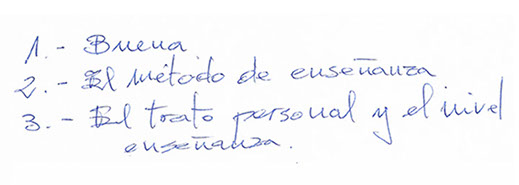 1.- Buena
2.- El método de enseñanza
3.- El trato personal y el nivel
enseñanza.